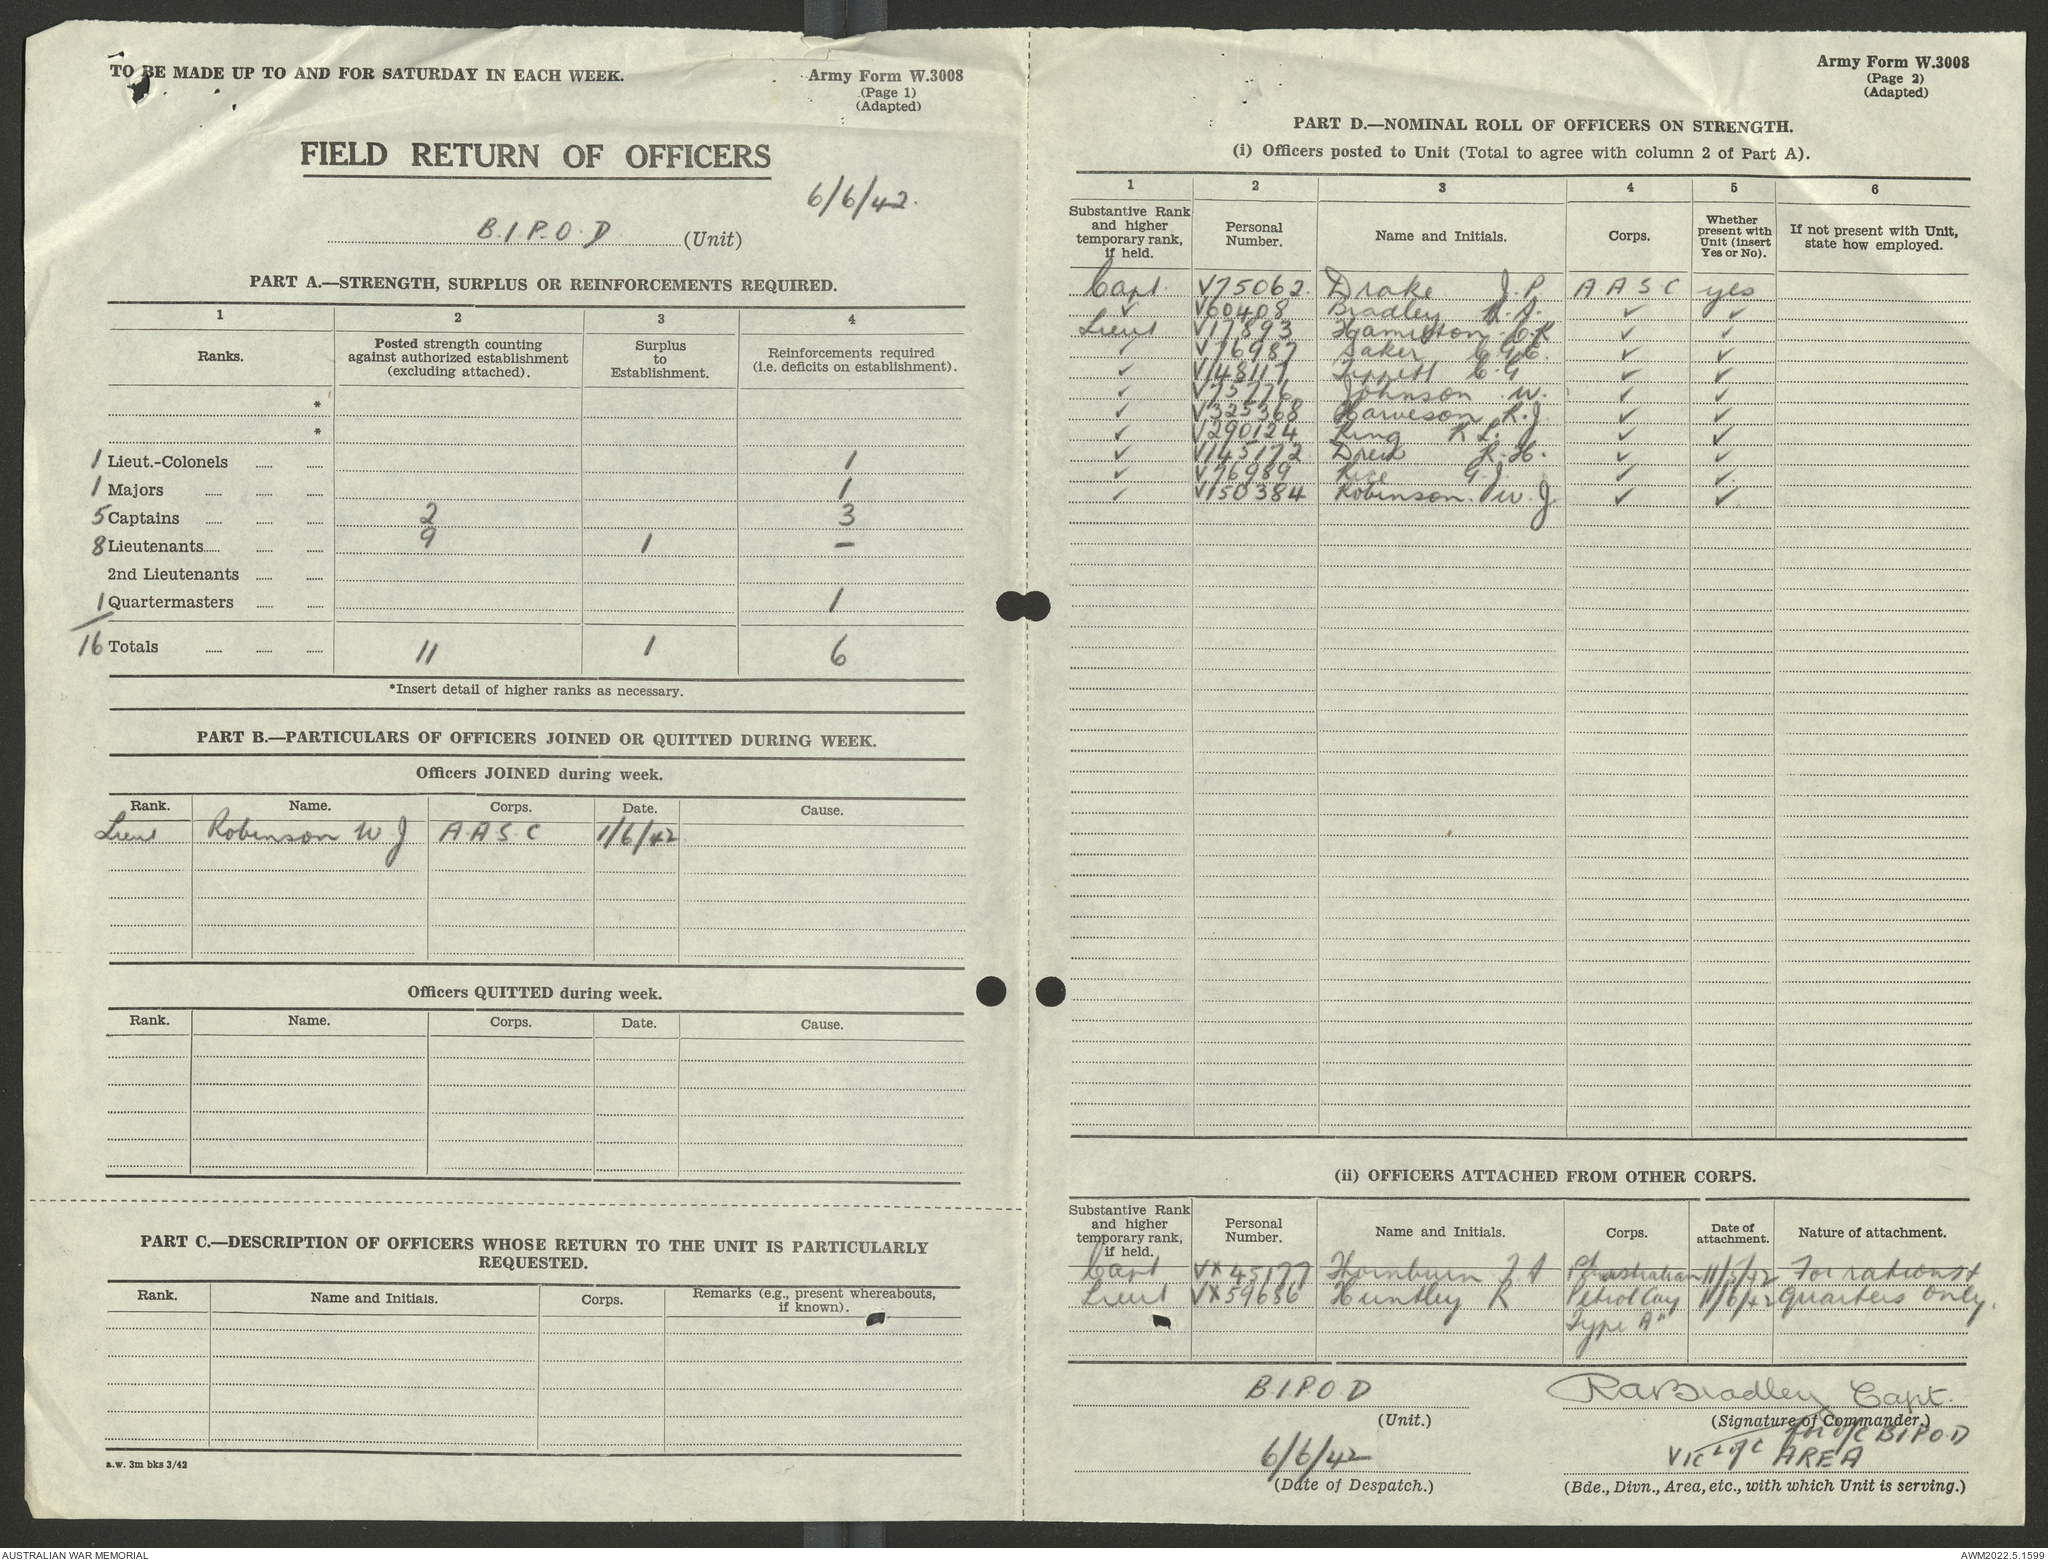 TO BE MADE UP TO AND FOR SATURDAY IN EACH WEEK.
Army Form W.3008
(Page 1)
(Adapted)
FIELD RETURN OF OFFICERS
6/6/42.
B.I.P.O.D (Unit)
PART A.—STRENGTH, SURPLUS OR REINFORCEMENTS REQUIRED.
1 2 3 4
Ranks. Posted strength counting against authorized establishment (excluding attached). Surplus to Establishment. Reinforcements required (i.e. deficits on establishment).
*
*
1 Lieut.-Colonels 1
1 Majors 1
5 Captains 2 3
8 Lieutenants 9 1 –
2nd Lieutenants
1 Quartermasters 1
16 Totals 11 1 6
*Insert detail of higher ranks as necessary.
PART B.—PARTICULARS OF OFFICERS JOINED OR QUITTED DURING WEEK.
Officers JOINED during week.
Rank. Name. Corps. Date. Cause.
Lieut Robinson W.J A.A.S.C 1/6/42
Officers QUITTED during week.
Rank. Name. Corps. Date. Cause.
PART C.—DESCRIPTION OF OFFICERS WHOSE RETURN TO THE UNIT IS PARTICULARLY
REQUESTED.
Rank. Name and Initials. Corps. Remarks (e.g., present whereabouts, if known).
a.w. 3m bks 3/42
Army Form W.3008
(Page 2)
(Adapted)
PART D.—NOMINAL ROLL OF OFFICERS ON STRENGTH.
(i) Officers posted to Unit (Total to agree with column 2 of Part A).
1 2 3 4 5 6
Substantive Rank and higher temporary rank, if held. Personal Number. Name and Initials. Corps. Whether present with Unit (insert Yes or No). If not present with Unit, state how employed.
Capt. V75062. Drake J.P. A A S C yes
✓ V60408 Bradley R.A. ✓ ✓
Lieut V17893 Hamilton C.R ✓ ✓
✓ V76987 Baker C.G.E. ✓ ✓
✓ V148117 Tippett C.G ✓ ✓
✓ V75776 Johnson W. ✓ ✓
✓ V325368 Harveson R.J. ✓ ✓
✓ V290124 King R L. ✓ ✓
✓ V145172 Drew R.H. ✓ ✓
✓ V76989 Rice G.J. ✓ ✓
✓ V150384 Robinson W.J. ✓ ✓
(ii) OFFICERS ATTACHED FROM OTHER CORPS.
Substantive Rank and higher temporary rank, if held. Personal Number. Name and Initials. Corps. Date of attachment. Nature of attachment.
Capt VX45177 Thornburn J A Australian 11/5/42 For rations &
Lieut VX59656 Huntley R Petrol Coy 11/6/42 Quarters only.
Type "A"
B.I.P.O.D
(Unit.)
RABradley Capt.
(Signature of Commander.)
for O/C B.I.P.O.D
6/6/42
(Date of Despatch.)
VIC L of C AREA
(Bde., Divn., Area, etc., with which Unit is serving.)
AUSTRALIAN WAR MEMORIAL
AWM2022.5.1599